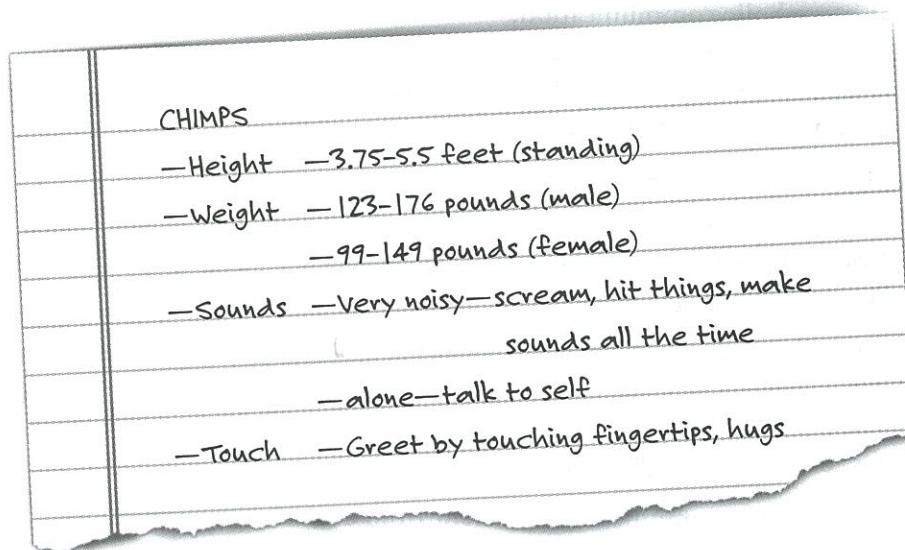 CHIMPS
—Height —3.75–5.5 feet (standing)
—Weight —123–176 pounds (male)
—99–149 pounds (female)
—Sounds —Very noisy—scream, hit things, make
sounds all the time
—alone—talk to self
—Touch —Greet by touching fingertips, hugs